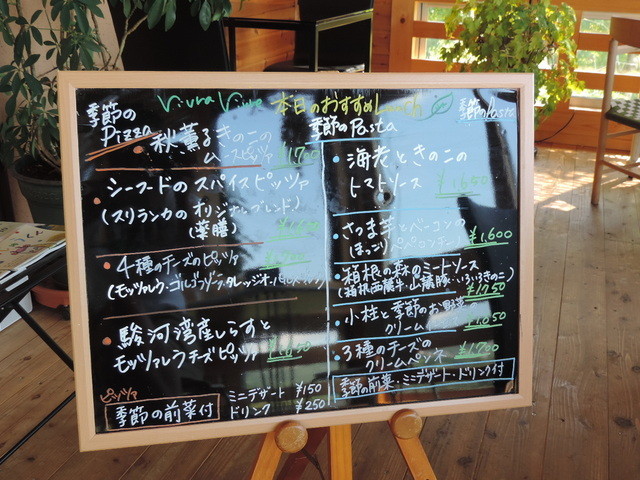 Viura Viura 本日のおすすめLunch
季節の
Pizza
秋薫るきのこの
ムースピッツァ ¥1,700
シーフードのスパイスピッツァ
(スリランカのオリジナルブレンド)
(薬膳)
4種のチーズのピッツァ
(モッツァレラ・ゴルゴンゾーラ・タレッジオ・
駿河湾産しらすと
モッツァレラチーズピッツァ
ピッツァ
季節の前菜付
ミニデザート ¥150
ドリンク ¥250
季節のPasta
季節のPasta
海老ときのこの
トマトソース ¥1,650
さつま芋とベーコンの
(ほっこり ペペロンチーノ) ¥1,600
箱根の森のミートソース
(箱根西麓牛・山麓豚・いろいろきのこ)
¥1,750
小柱と季節のお野菜
クリーム ¥1,650
3種のチーズの
クリームペンネ ¥1,700
季節の前菜・ミニデザート・ドリンク付